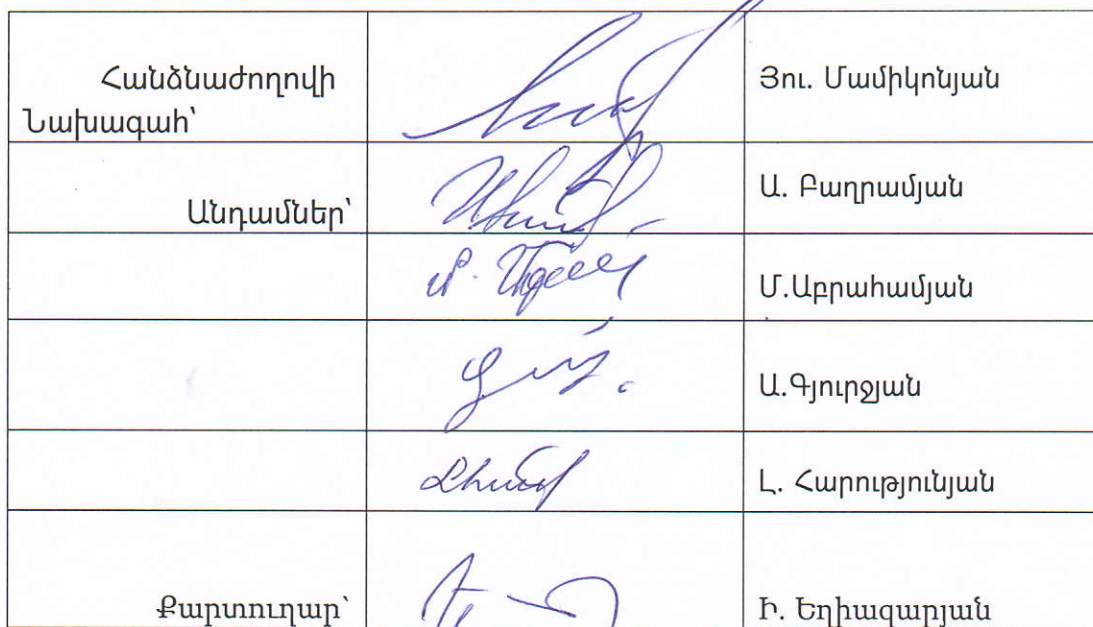 Հանձնաժողովի
Նախագահ՝
Յու. Մամիկոնյան
Անդամներ՝
Ա. Բաղրամյան
Մ.Աբրահամյան
Ա.Գյուրջյան
Լ. Հարությունյան
Քարտուղար՝
Ի. Եղիազարյան